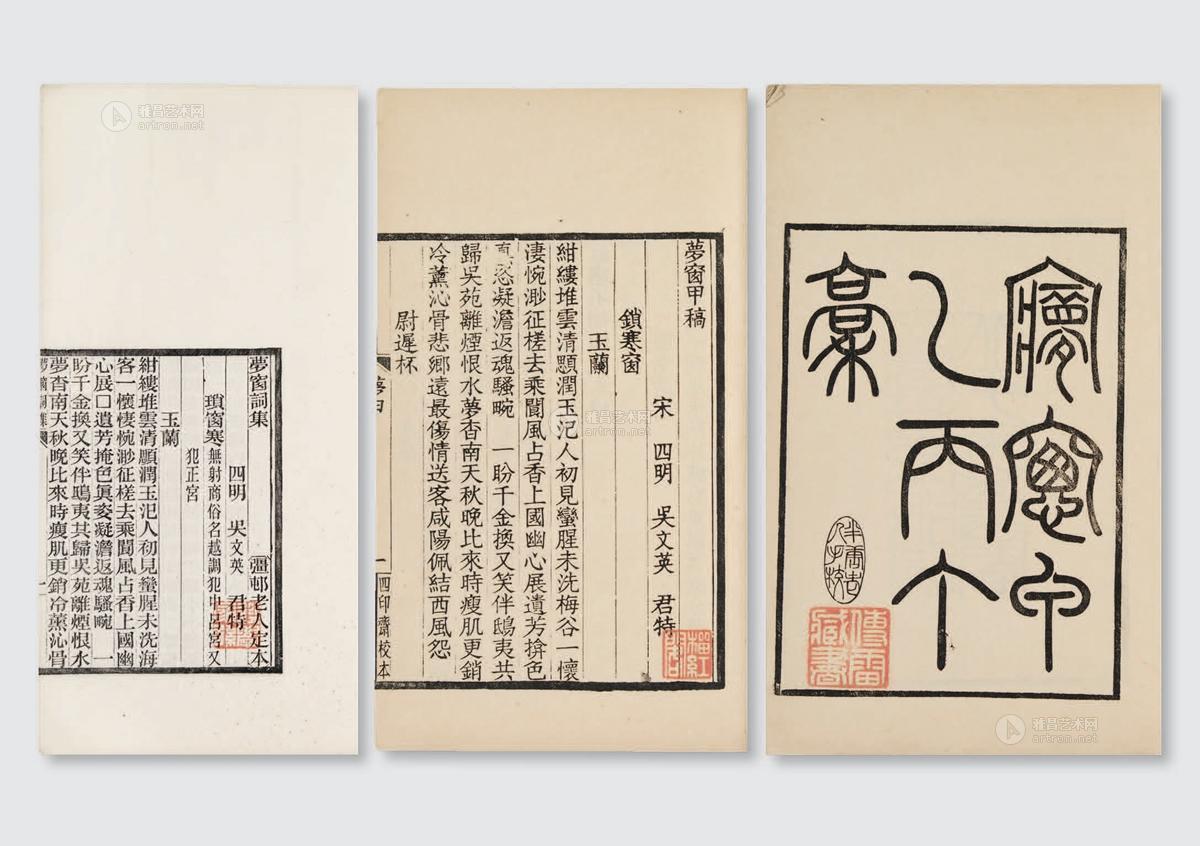 夢窗甲
乙丙丁
稾
傅雷
藏書
夢窗甲稿
宋 四明 吳文英 君特
鎖寒窗
玉蘭
紺縷堆雲清顋潤玉汜人初見蠻腥未洗梅谷一懷
淒惋渺征槎去乘閬風占香上國幽心展遺芳揜色
真恣凝澹返魂騷畹 一盼千金換又笑伴鴟夷共
歸吳苑離煙恨水夢杳南天秋晚比來時瘦肌更銷
冷薰沁骨悲鄉遠最傷情送客咸陽佩結西風怨
尉遲杯
夢甲
一
四印齋校本
榴紅
夢窗詞集 彊邨老人定本
四明 吳文英 君特
瑣窗寒 無射商俗名越調犯中呂宮又
犯正宮
玉蘭
紺縷堆雲清顋潤玉汜人初見蠻腥未洗海
客一懷悽惋渺征槎去乘閬風占香上國幽
心展□遺芳掩色眞姿凝澹返魂騷畹 一
盼千金換又笑伴鴟夷共歸吳苑離煙恨水
夢杳南天秋晚比來時瘦肌更銷冷薰沁骨
夢窗詞集
一
雅昌艺术网
artron.net
雅昌艺术网
artron.net
雅昌艺术网
artron.net